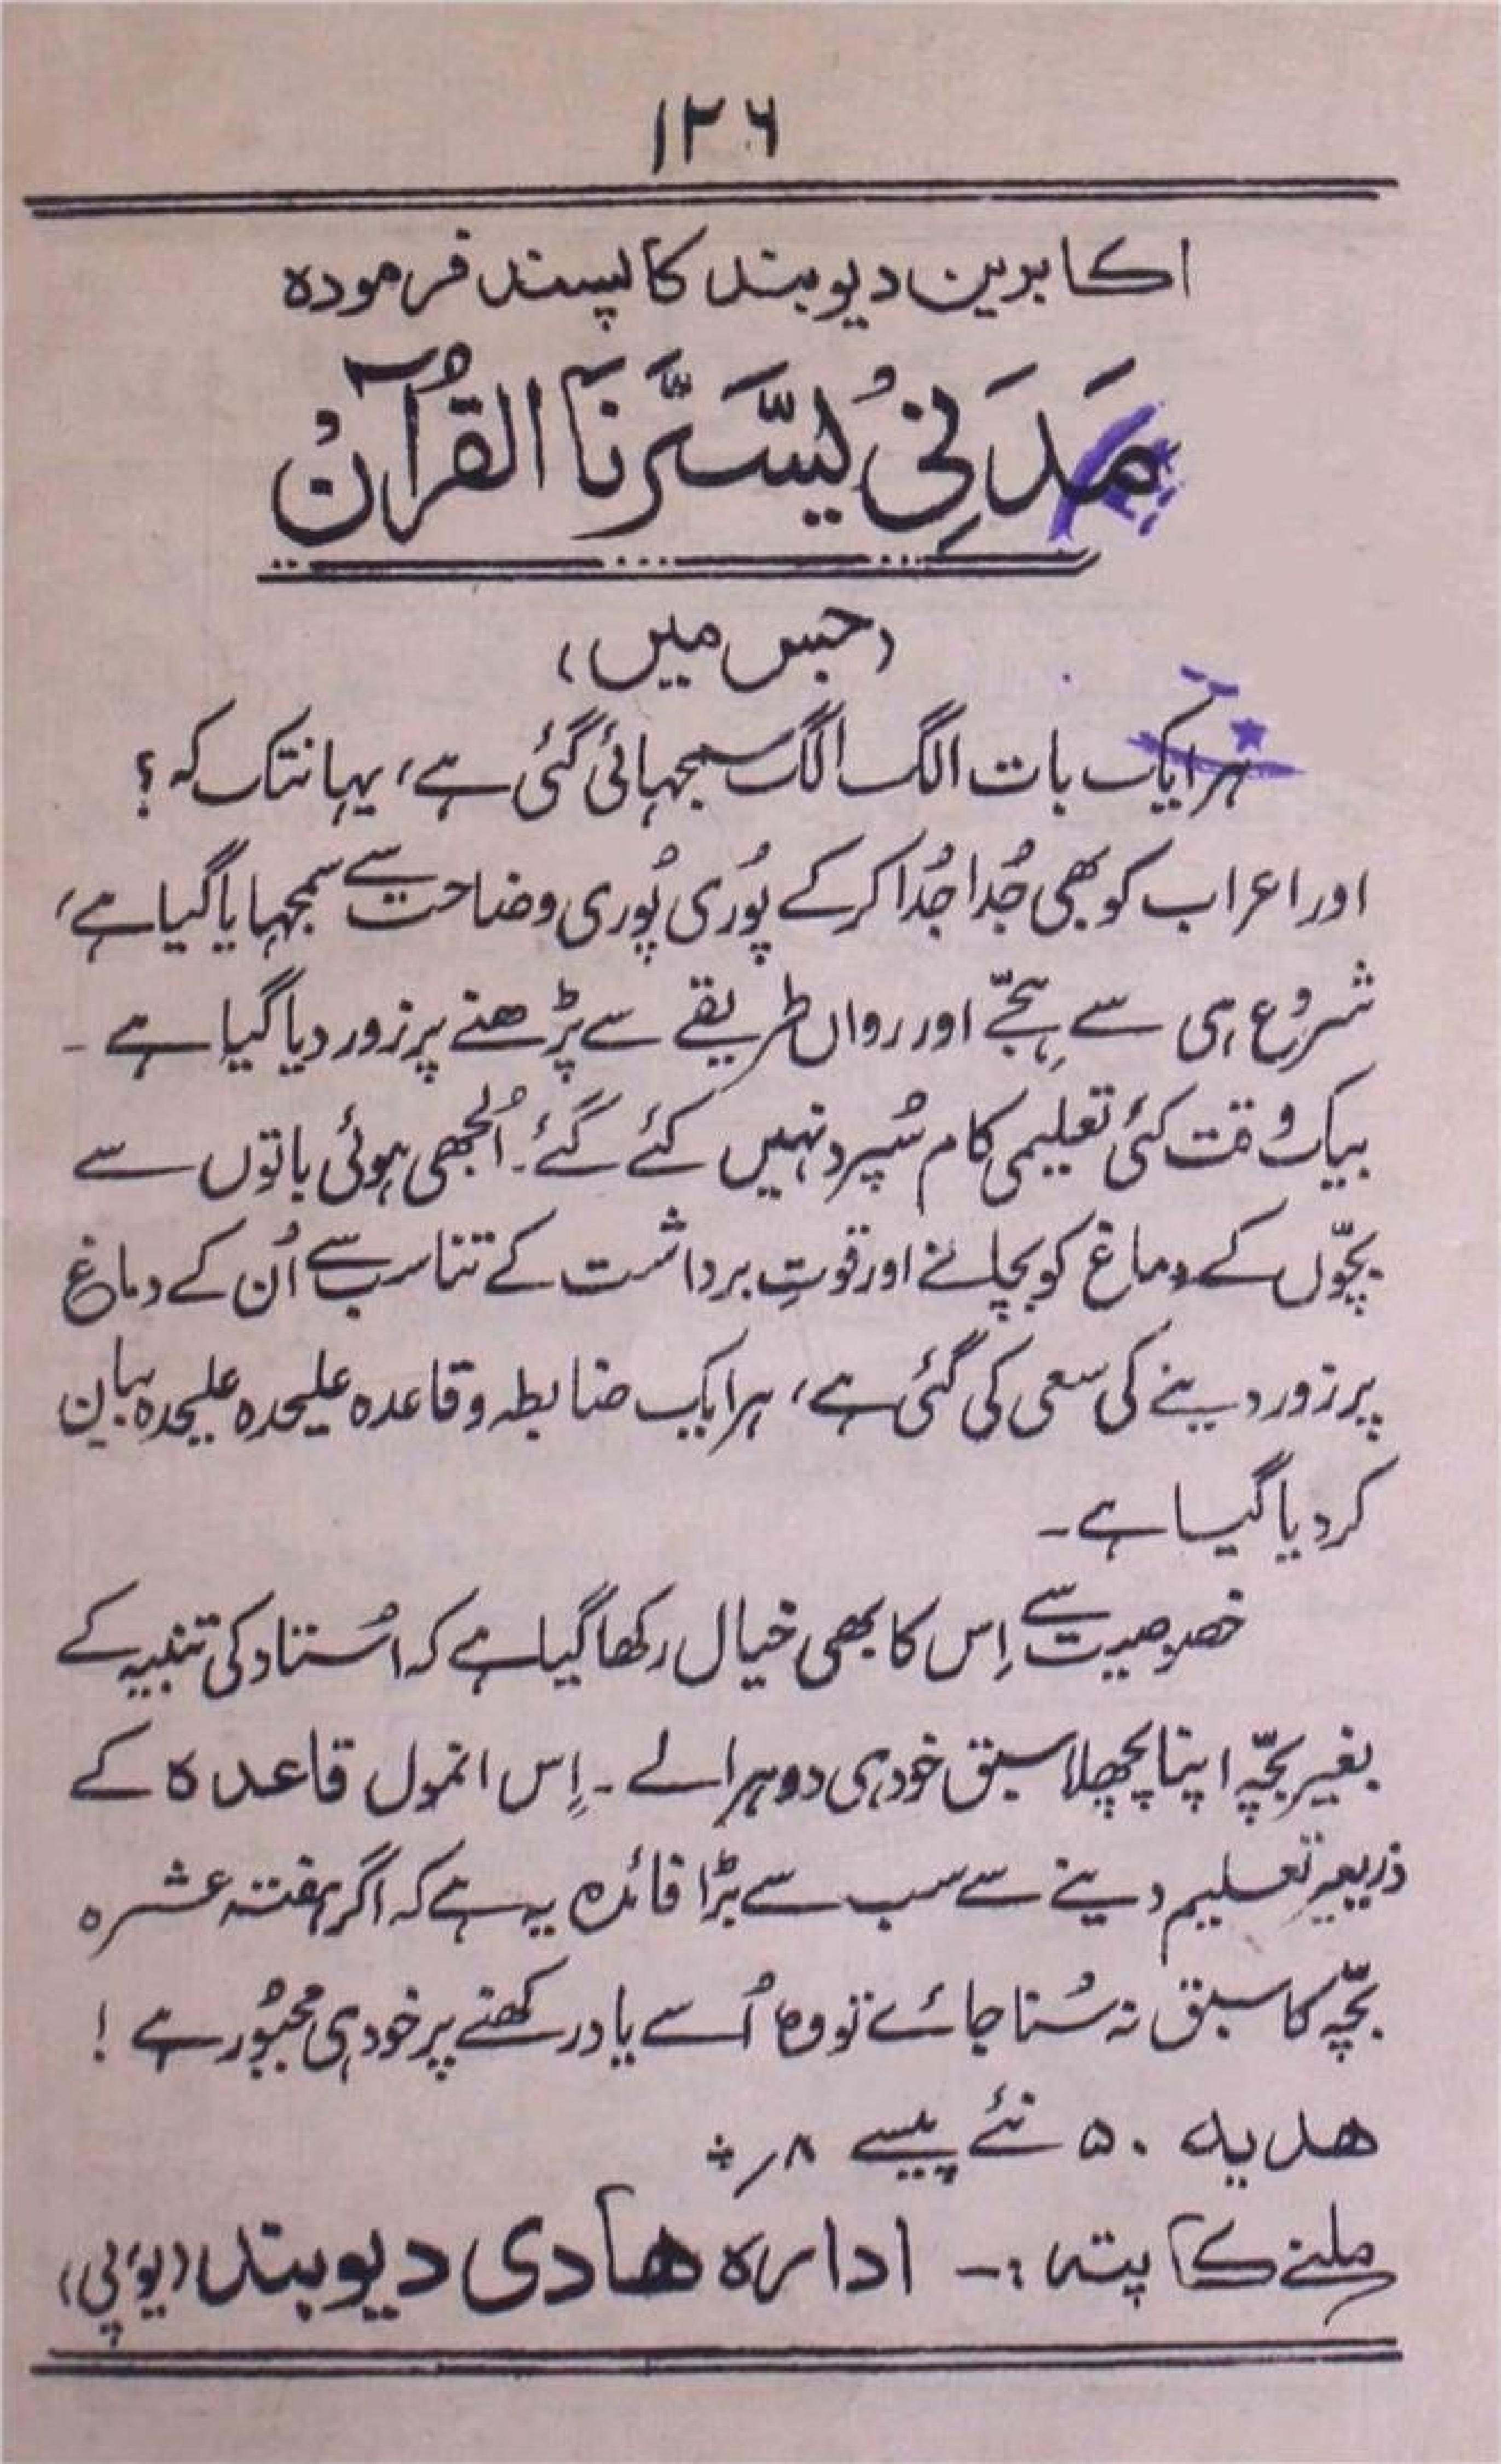 ۱۲۶
اکابرین دیوبند کا پسند فرمودہ
مَدَنِیُ یَسَّرنَا القُرآنُ
(جس میں)
ہر ایک بات الگ الگ سمجہائی گئی ہے، یہانتک کہ ؟
اور اعراب کو بھی جُدا جُدا کرکے پُوری پُوری وضاحت سے سمجہایا گیا ہے،
شروُع ہی سے ہِجّے اور رواں طریقے سے پڑھنے پر زور دیا گیا ہے ۔
بیک وقت کئی تعلیمی کام سُپرد نہیں کئے گئے۔ اُلجھی ہوئی باتوں سے
بچّوں کے دماغ کو بچانے اور قوتِ برداشت کے تناسب سے اُن کے دماغ
پر زور دینے کی سعی کی گئی ہے، ہر ایک ضابطہ و قاعدہ علیحدہ علیحدہ بیان
کر دیا گیا ہے ۔
خصوصیت سے اِس کا بھی خیال رکھا گیا ہے کہ اُستاد کی تنبیہ کے
بغیر بچّہ اپنا پچھلا سبق خود ہی دوہرا لے ۔ اِس انمول قاعدہ کے
ذریعہ تعلیم دینے سے سب سے بڑا فائدہ یہ ہے کہ اگر ہفتہ عشرہ
بچّہ کا سبق نہ سُنا جائے تو وہ اُسے یاد رکھنے پر خود ہی مجبُور ہے !
ھدیہ ۵۰ نئے پیسے ۸؍
ملنے کا پتہ :۔ ادارہ ھادی دیوبند (یوُپی)